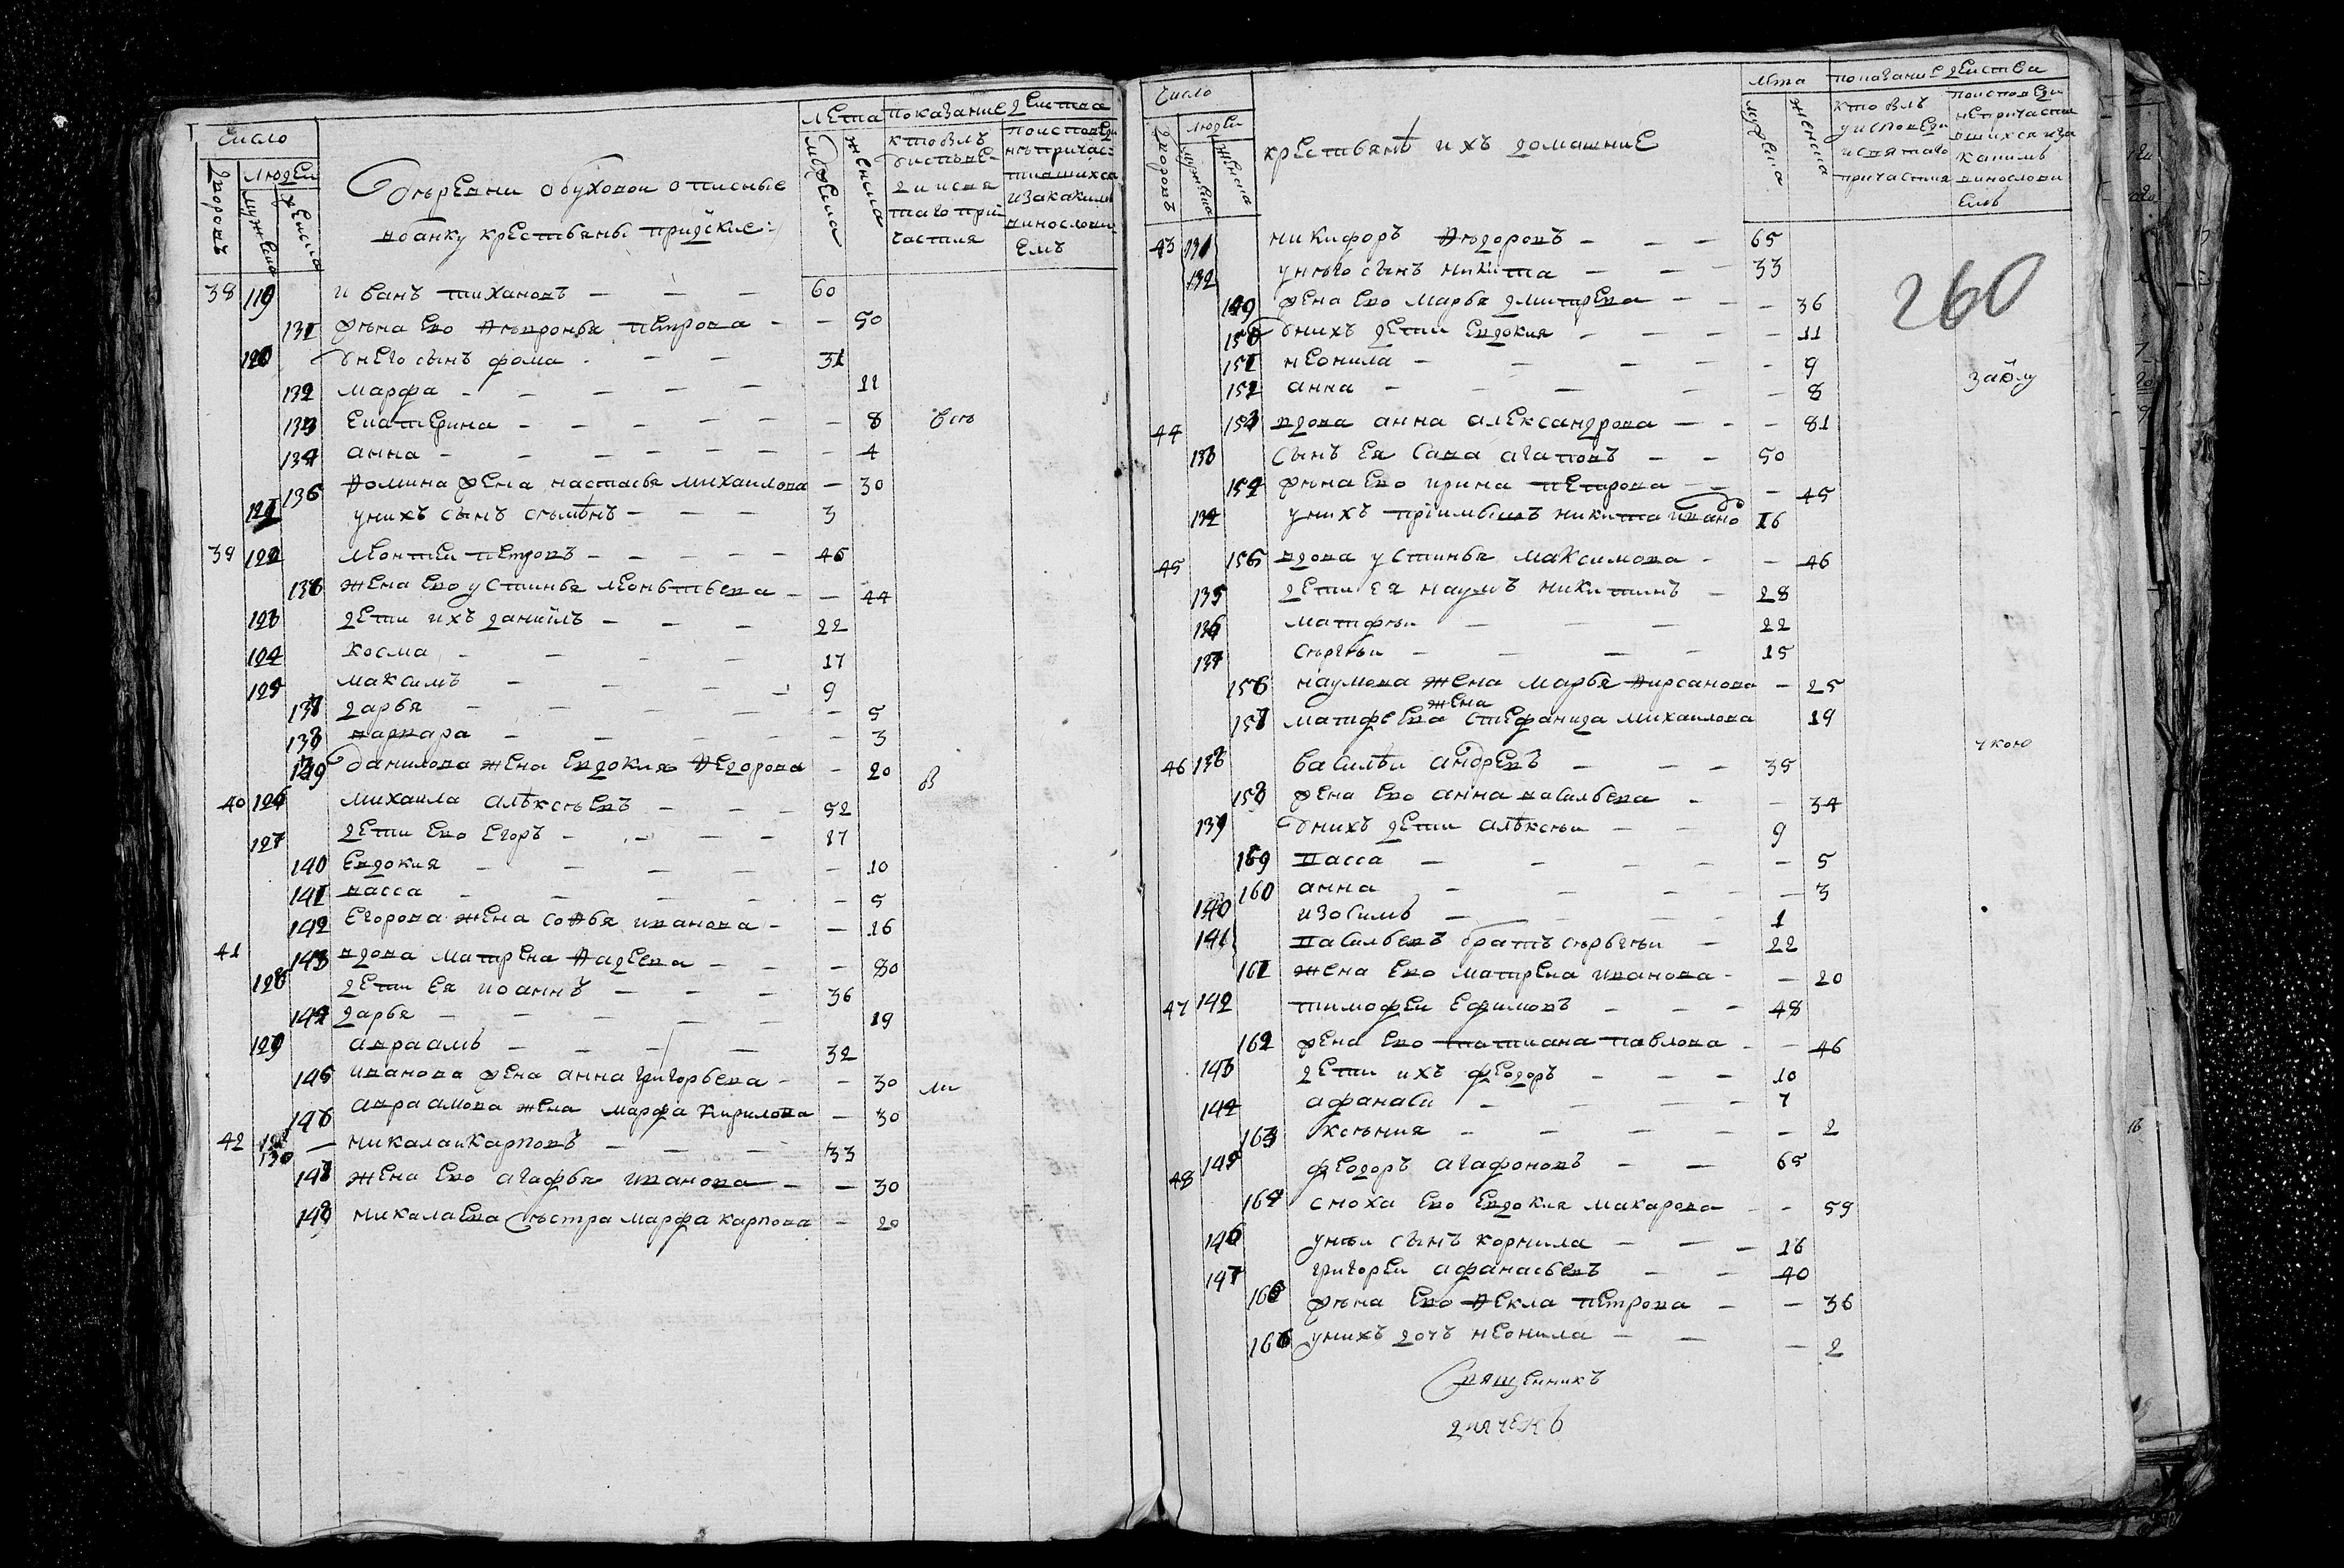 Число
Людей
Дворовъ
Мужеска
Женска
Деревни Обуховой описные
в банку крестьяны
Лета
Мужеска
Женска
Показание действа
кто былъ
у исповеди и свя
таго при
частия
38 119 иванъ тихановъ — — — 60
131 жена ево петрова — — 50
120 у него сынъ фома — — 31
132 марфа — — — — 11
133 екатерина — — — — 8
134 анна — — — — 4
135 Фомина жена настасья михаилова — 30
121 у нихъ сынъ семѣнъ — — — 3
39 122 леонтеи петровъ — — — 45
136 жена ево устинья леоньтьева — — 44
123 дети ихъ данiилъ — — — 22
124 косма — — — — 17
125 максимъ — — — — 9
137 дарья — — — — 5
138 варвара — — — — 3
139 данилова жена евдокия Федорова — 20
40 126 михаила алѣксеевъ — — — 52
127 дети ево егоръ — — — 17
140 евдокия — — — — 10
141 васса — — — — 5
142 егорова жена софья иванова — — 16
41 143 вдова матрена Фадеева — — 80
128 дети ея иоаннъ — — — 36
144 дарья — — — — 19
129 авраамъ — — — — 32
145 иванова жена анна григорьева — — 30
146 авраамова жена марфа кирилова — 30
42 130 — никалаи карповъ — — — 33
147 жена ево агафья иванова — — 30
148 никалаева сестра марфа карпова — 20
Число
Людей
Дворовъ
Мужеска
Женска
крестьянѣ и ихъ домашние
лѣта
мужеска
женска
показание действа
кто былъ
у исповеди
и святаго
причастия
260
43 131 никифоръ Федоровъ — — — 65
132 у него сынъ никита — — — 33
149 жена ево марья дмитрева — — 36
150 у нихъ дети евдокия — — — 11
151 неонила — — — — 9
152 анна — — — — 8
44 153 вдова анна александрова — — 81
133 сынъ ея сава агаповъ — — 50
154 жена ево ирина петрова — — 45
134 у нихъ прiимышъ никита ивано 16
45 155 вдова устинья максимова — — 46
135 дети ея наумъ никитинъ — 28
136 матфеи — — — 22
137 сергеи — — — 15
156 наумова жена марья Фирсанова — 25
157 матфеева жена стефанида михаилова 19
46 138 василѣи андревъ — — — 35
158 жена ево анна васильева — — 34
139 у нихъ дети алѣксеи — — 9
159 васса — — — — 5
160 анна — — — — 3
140 изосимъ — — — 1
141 васильевъ братъ сергеи — 22
161 жена ево матрена иванова — — 20
47 142 тимофеи ефимовъ — — — 48
162 жена ево татиана павлова — — 46
143 дети ихъ феодоръ — — — 10
144 афанаси — — — — 7
163 ксения — — — — 2
48 145 феодоръ агафоновъ — — 65
164 сноха ево евдокия макарова — — 59
146 у неи сынъ корнила — — — 16
147 григореи афанасьевъ — — 40
165 жена ево Фекла петрова — — 36
166 у нихъ дочъ неонила — — — 2
Священникъ
дячекъ